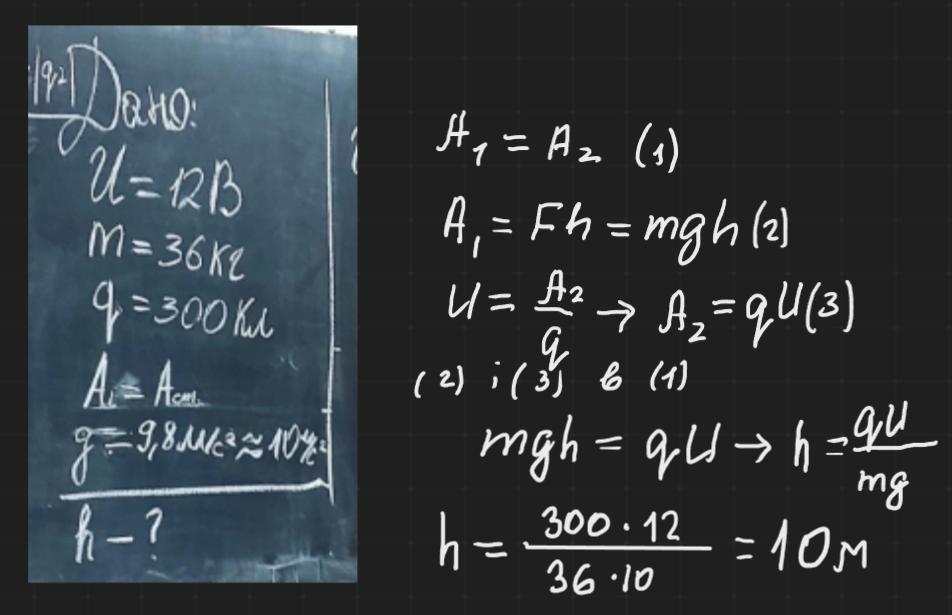 |q₂|
Дано:
U = 12 В
m = 36 кг
q = 300 Кл
g = 9,8 м/с² ≈ 10 м/с²
h - ?
A₁ = A₂ (1)
A₁ = Fh = mgh (2)
U = A₂/q → A₂ = qU (3)
(2) і (3) в (1)
mgh = qU → h = qU/mg
h = 300 · 12 / 36 · 10 = 10 м